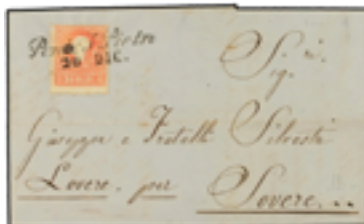 20 DIC.
Sig.ri
Giuseppe e Fratelli Silvestri
Lovere. per Sovere...